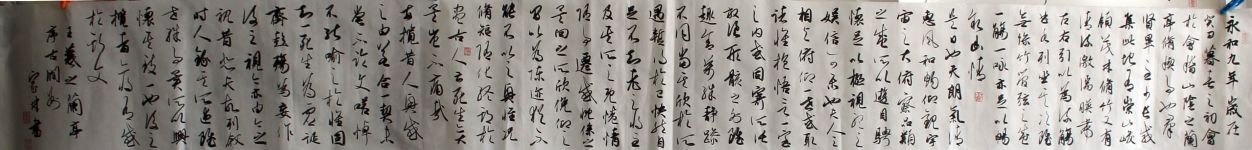 永和九年歲在
癸丑暮春之初會
於會稽山陰之蘭
亭脩稧事也羣
賢畢至少長咸
集此地有崇山峻
領茂林脩竹又有
清流激湍映帶
左右引以為流觴
曲水列坐其次雖
無絲竹管弦之盛
一觴一詠亦足以暢
叙幽情
是日也天朗氣清
惠風和暢仰觀宇
宙之大俯察品類
之盛所以遊目騁
懷足以極視聽之
娛信可樂也夫人之
相與俯仰一世或取
諸懷抱悟言一室
之內或因寄所託
放浪形骸之外雖
趣舍萬殊靜躁
不同當其欣於所
遇暫得於己快然自
足不知老之將至
及其所之既惓情
隨事遷感慨係之
矣向之所欣俛仰之
間以為陳迹猶不
能不以之興懷況
脩短隨化終期於
盡古人云死生亦大
矣豈不痛哉
每攬昔人興感
之由若合一契未
嘗不臨文嗟悼
不能喻之於懷固
知一死生為虛誕
齊彭殤為妄作
後之視今亦由今之
視昔悲夫故列敘
時人錄其所述雖
世殊事異所以興
懷其致一也後之
攬者亦將有感
於斯文
王羲之蘭亭
序
書